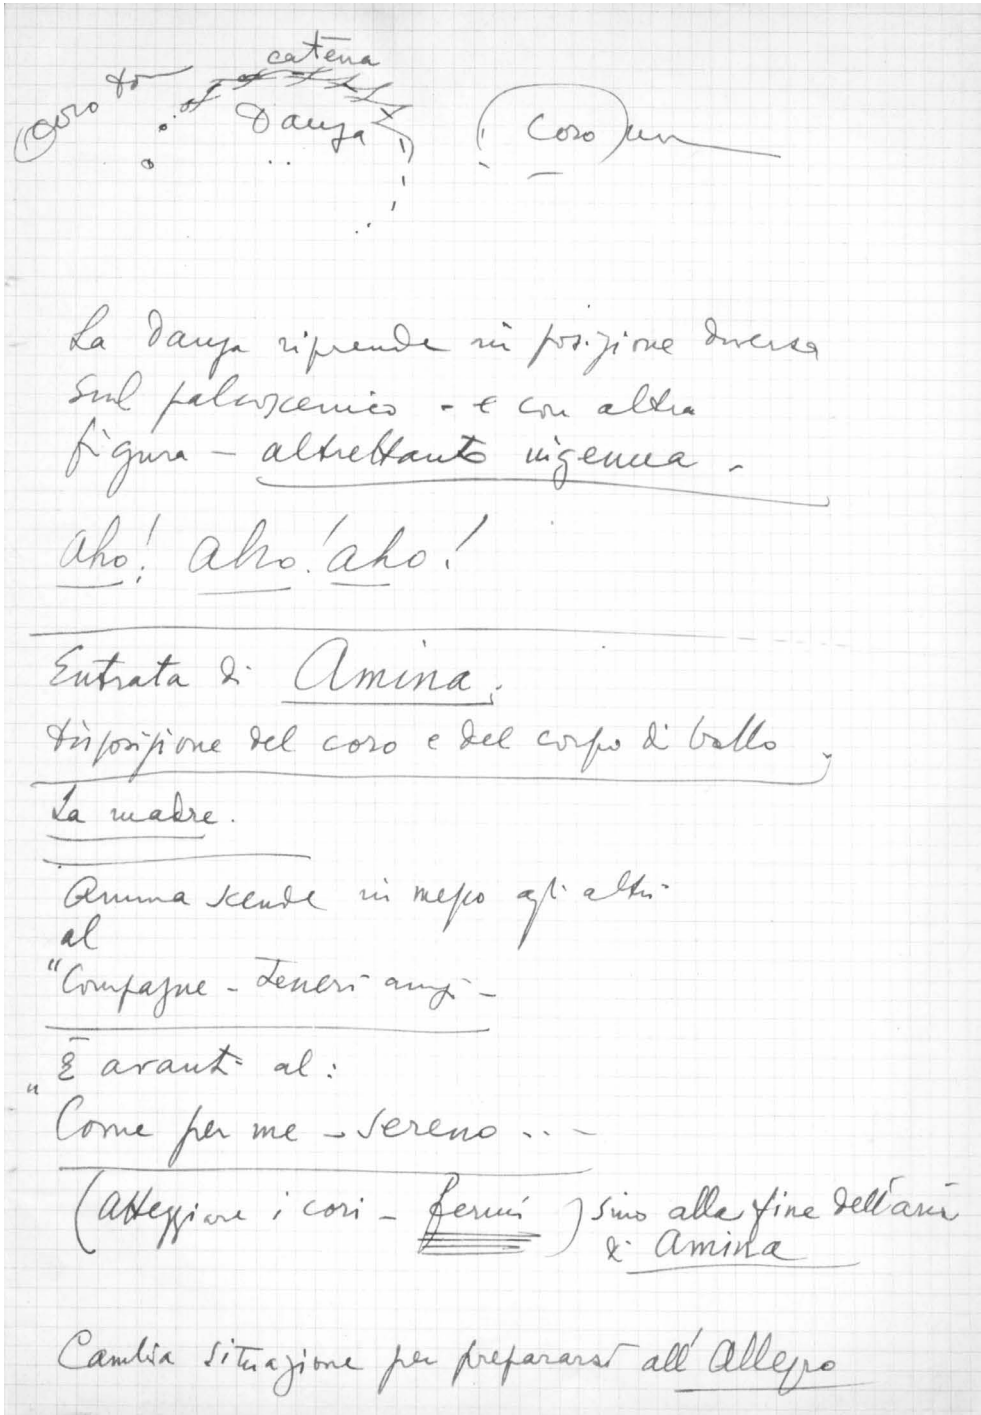 catena
Coro
Danza
Coro
La Danza riprende in posizione diversa
sul palcoscenico - e con altra
figura - altrettanto ingenua.
Aho! Aho! aho!
Entrata di Amina.
disposizione del coro e del corpo di ballo.
La madre.
Amina scende in mezzo agli altri
al
"Compagne - teneri amici -
E avanti al:
"Come per me - sereno ...
(Atteggiare i cori - fermi) sino alla fine dell'aria
di Amina
Cambia situazione per prepararsi all'Allegro